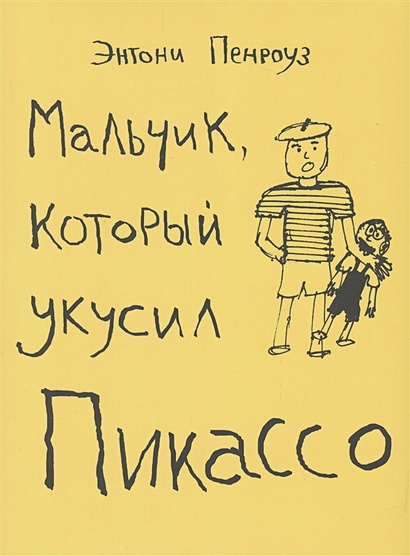 Энтони Пенроуз
Мальчик,
который
укусил
Пикассо